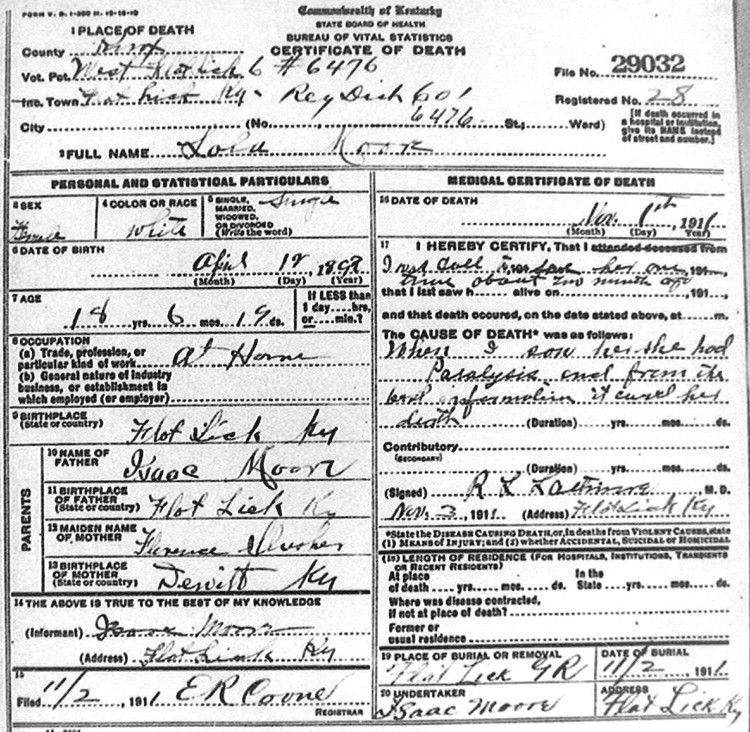 FORM V. S. 1-200 M. 10-18-10
Commonwealth of Kentucky
STATE BOARD OF HEALTH
BUREAU OF VITAL STATISTICS
CERTIFICATE OF DEATH
1 PLACE OF DEATH
County Knox
Vot. Pct. West Flat Lick 6 # 6476
File No. 29032
Inc. Town Flat Lick Ky - Reg Dist 601
Registered No. 28
City (No. 6476 St.; Ward)
[If death occurred in a hospital or institution, give its NAME instead of street and number.]
2 FULL NAME Lola Moore
PERSONAL AND STATISTICAL PARTICULARS
3 SEX Female
4 COLOR OR RACE White
5 SINGLE, MARRIED, WIDOWED, OR DIVORCED (Write the word) Single
6 DATE OF BIRTH
April 12 1892
(Month) (Day) (Year)
7 AGE
18 yrs. 6 mos. 19 ds.
If LESS than 1 day....hrs, or....min.?
8 OCCUPATION
(a) Trade, profession, or particular kind of work At Home
(b) General nature of Industry business, or establishment in which employed (or employer)
9 BIRTHPLACE
(State or country) Flat Lick Ky
PARENTS
10 NAME OF FATHER Isaac Moore
11 BIRTHPLACE OF FATHER (State or country) Flat Lick Ky
12 MAIDEN NAME OF MOTHER Florence
13 BIRTHPLACE OF MOTHER (State or country) Dewitt Ky
14 THE ABOVE IS TRUE TO THE BEST OF MY KNOWLEDGE
(Informant) Isaac Moore
(Address) Flat Lick Ky
15
Filed 11/2, 1911 E R
REGISTRAR
MEDICAL CERTIFICATE OF DEATH
16 DATE OF DEATH
Nov. 1st 1911
(Month) (Day) (Year)
17 I HEREBY CERTIFY, That I attended deceased from
I was call to see her one 191
time about two month ago
that I last saw h alive on , 191 ,
and that death occured, on the date stated above, at m.
The CAUSE OF DEATH* was as follows:
When I saw her she had
Paralysis and from the
best information it caused her
death
(Duration) yrs. mos. ds.
Contributory
(SECONDARY)
(Duration) yrs. mos. ds.
(Signed) R L M.D.
Nov. 3, 1911 (Address) Flat Lick Ky
*State the DISEASE CAUSING DEATH, or, in deaths from VIOLENT CAUSES, state
(1) MEANS OF INJURY; and (2) whether ACCIDENTAL, SUICIDAL or HOMICIDAL
(18) LENGTH OF RESIDENCE (FOR HOSPITALS, INSTITUTIONS, TRANSIENTS OR RECENT RESIDENTS)
At place of death yrs. mos. ds. In the State yrs. mos. ds.
Where was disease contracted,
if not at place of death?
Former or
usual residence
19 PLACE OF BURIAL OR REMOVAL
Flat Lick GR
DATE OF BURIAL
11/2, 1911
20 UNDERTAKER
Isaac Moore
ADDRESS
Flat Lick Ky